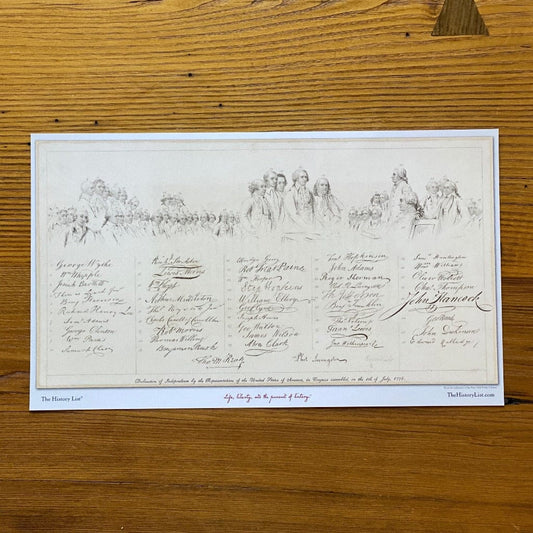 George Wythe
Wm Whipple
Josiah Bartlett
Benj Harrison
Richard Henry Lee
Sam Adams
George Clinton
Wm Paca
Samuel Chase
Lewis Morris
Wm Floyd
Arthur Middleton
Thos Heyward Jr
Charles Carroll of Carrollton
Robt Morris
Thomas Willing
Benjamin Rush
Elbridge Gerry
Robt Treat Paine
Wm Hooper
Step Hopkins
William Ellery
Geo Clymer
Geo Walton
James Wilson
Abra Clark
Fras Hopkinson
John Adams
Roger Sherman
Thos Nelson Jr
Frans Lewis
Jno Witherspoon
Saml Huntington
Wm Williams
Oliver Wolcott
Chas Thompson
John Hancock
Geo Read
John Dickinson
Edward Rutledge
Thos M:Kean
Phil. Livingston
Declaration of Independence by the Representatives of the United States of America, in Congress assembled, on the 4th of July, 1776.
The History List®
Life, liberty, and the pursuit of history®
TheHistoryList.com